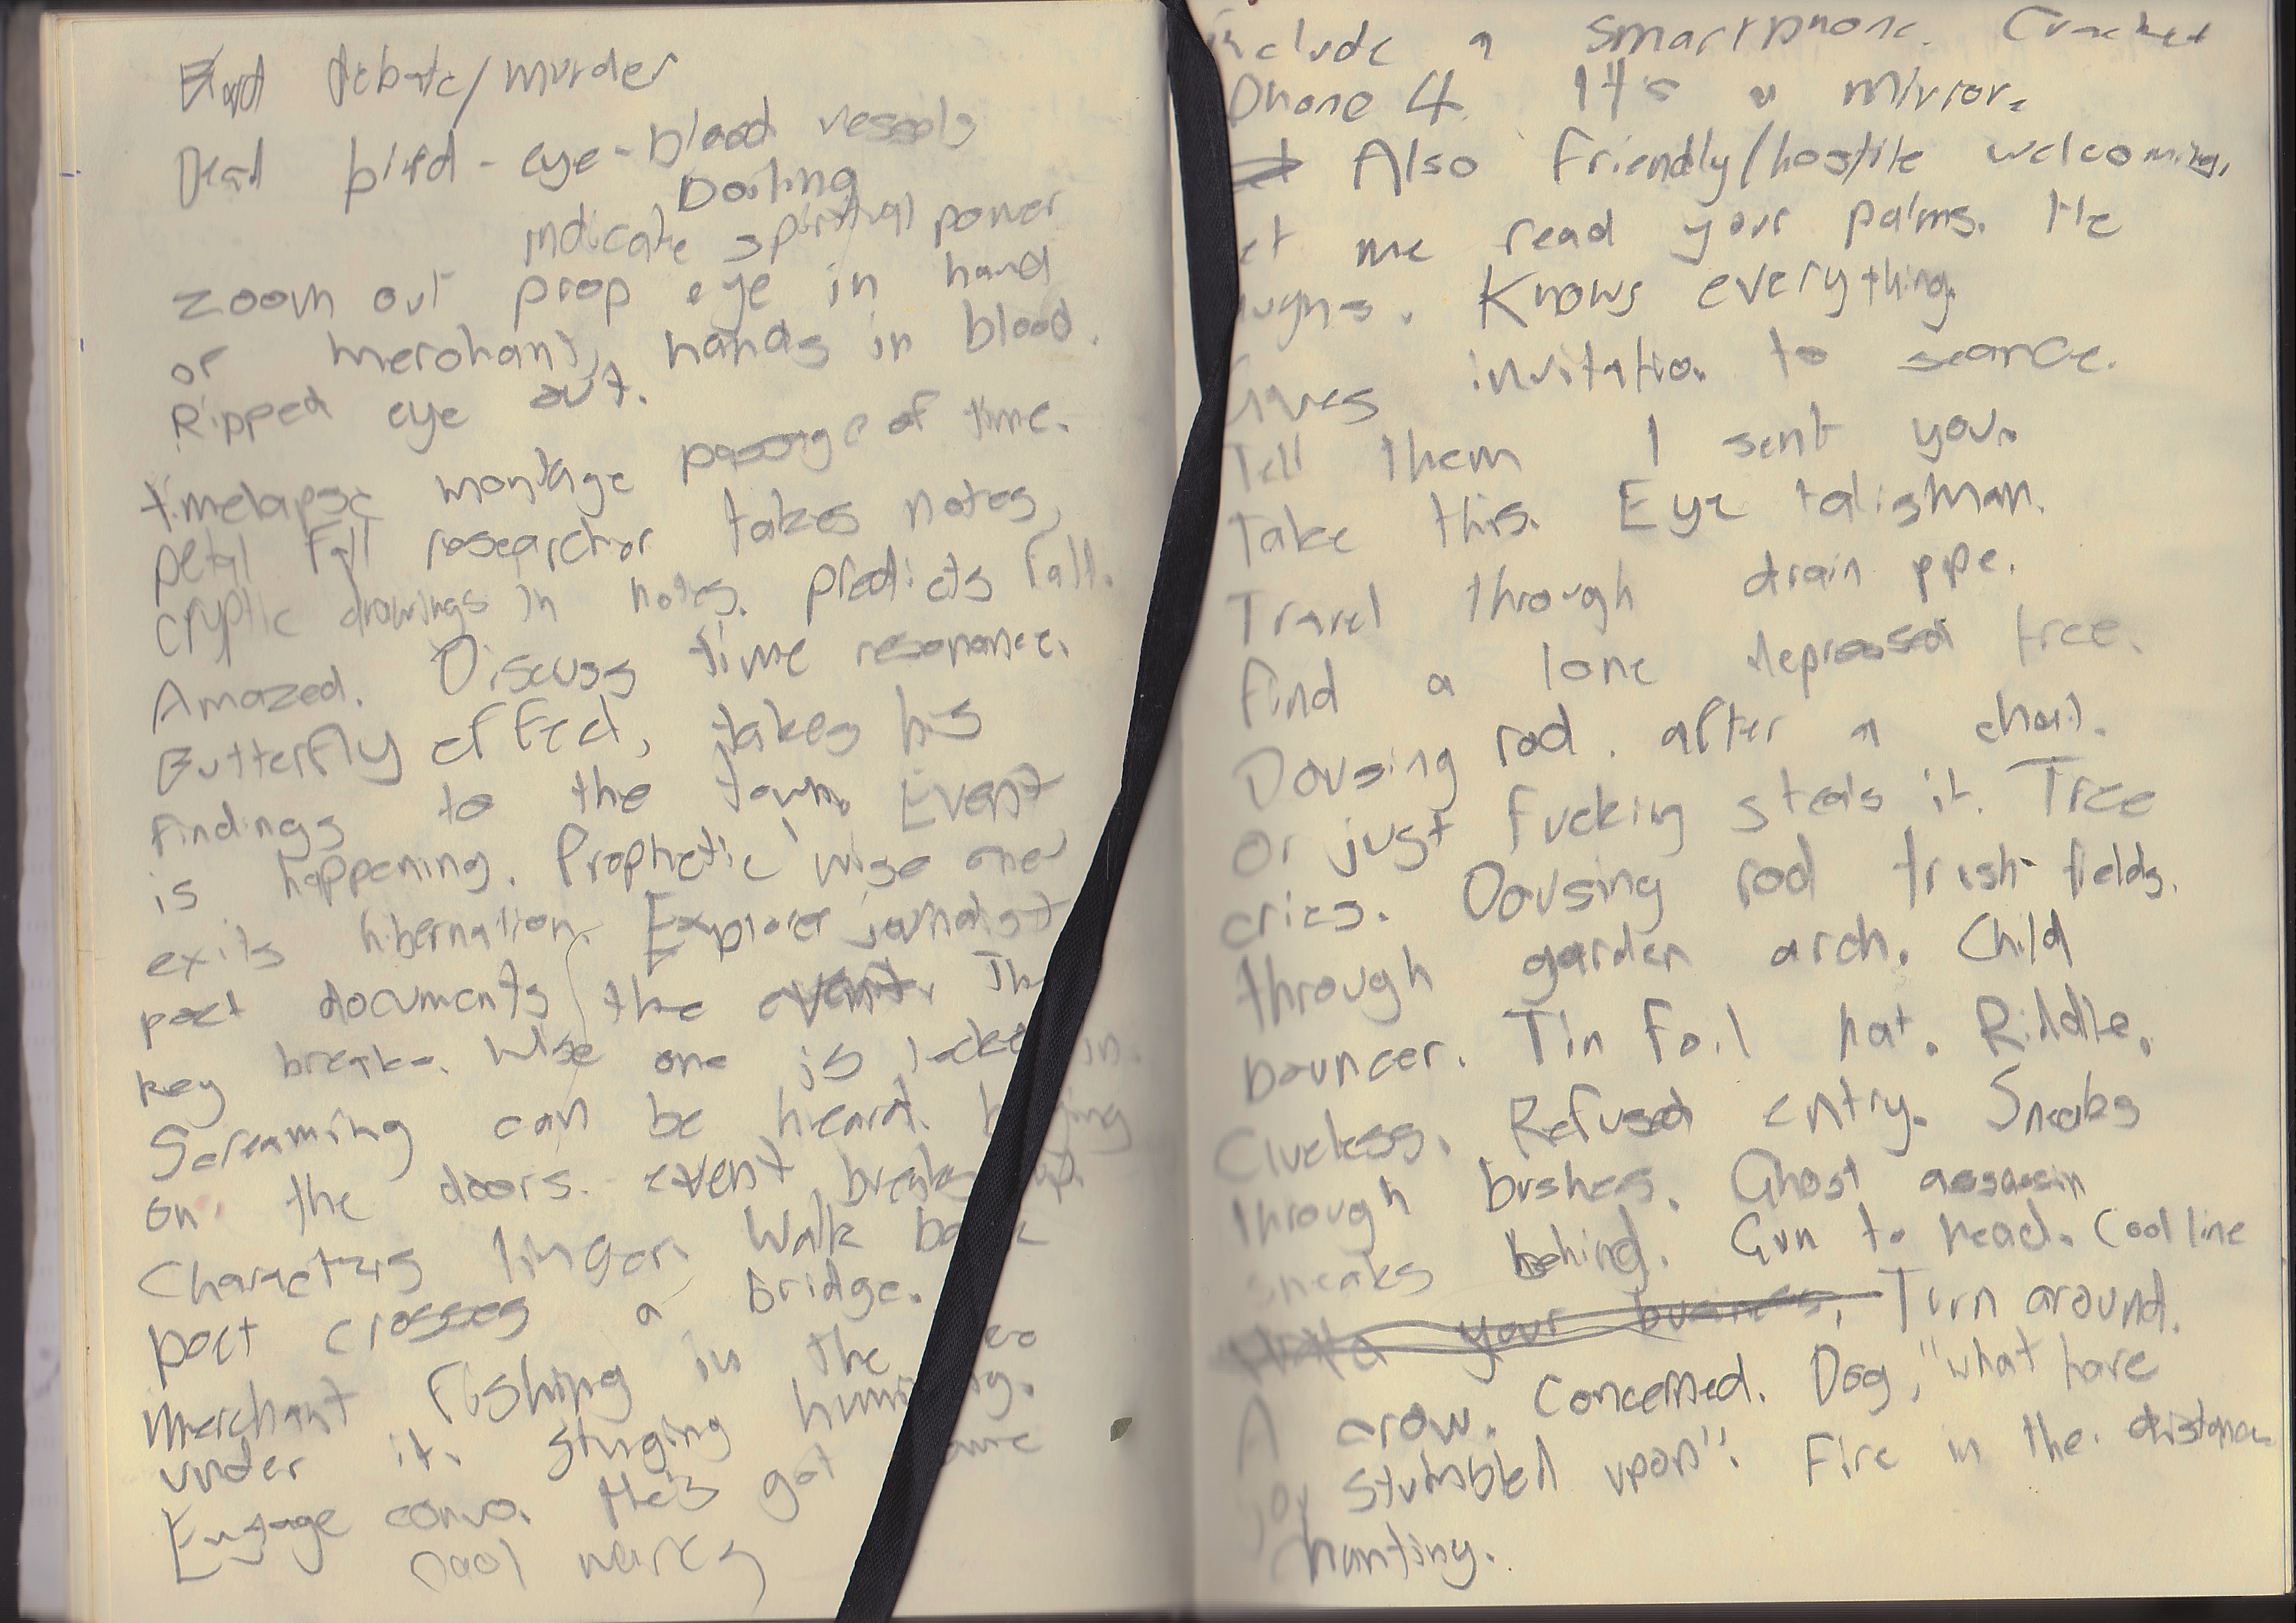 debate/murder
Dead bird - eye - blood vessels
Darting
indicate spiritual power
zoom out prop eye in hand
of merchant, hands in blood.
Ripped eye out.
timelapse montage passage of time.
petal fall researcher takes notes,
cryptic drawings in notes. predicts fall.
Amazed. Discuss time resonance.
Butterfly effect, takes his
findings to the town. Event
is happening. Prophetic wise one
exits hibernation. Explorer journalist
poet documents the event. The
key breaks. Wise one is locked in.
Screaming can be heard.
on the doors. event breaks up.
Characters linger. Walk back
poet crosses a bridge.
Merchant fishing in the
under it. singing humming.
Engage convo. He's got some
cool wares
include a smartphone. Cracked
Phone 4. It's a mirror.
Also friendly/hostile welcoming.
let me read your palms. He
laughs. Knows everything.
Gives invitation to seance.
Tell them I sent you.
Take this. Eye talisman.
Travel through drain pipe.
find a lone depressed tree.
Dousing rod. after a chat.
Or just fucking steals it. Tree
cries. Dousing rod trash fields.
through garden arch. Child
bouncer. Tin foil hat. Riddle.
Clueless. Refused entry. Sneaks
through bushes. Ghost assassin
sneaks behind. Gun to head. Cool line
your business. Turn around.
A crow. Concerned. Dog, "what have
you stumbled upon". Fire in the distance
chanting.